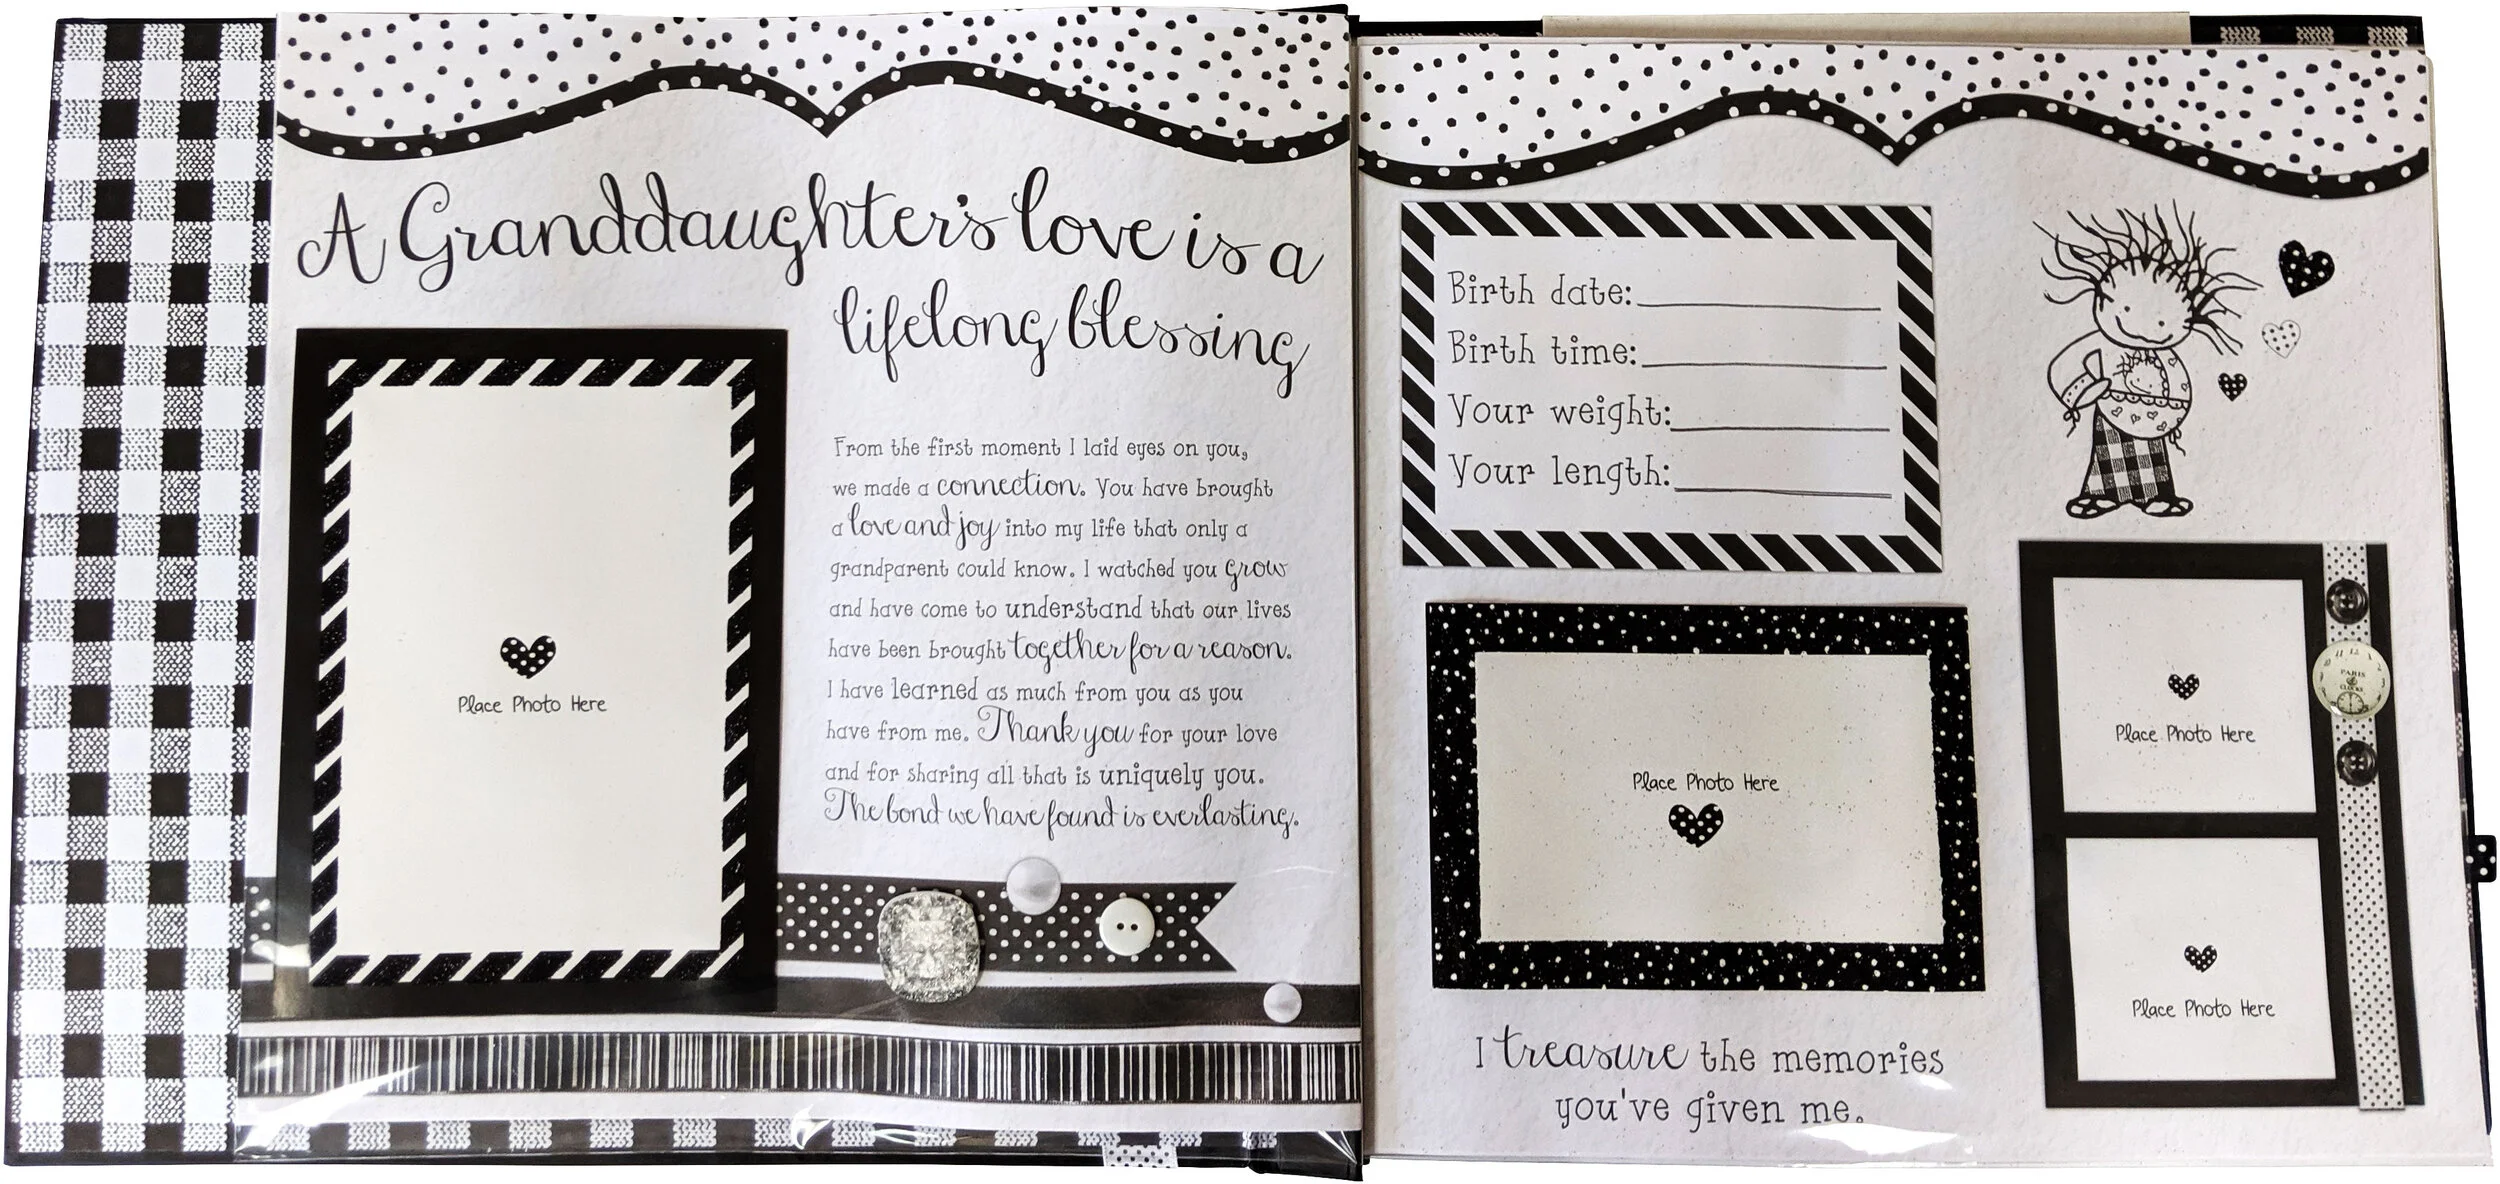 A Granddaughter's love is a
lifelong blessing
Place Photo Here
From the first moment I laid eyes on you,
we made a connection. You have brought
a love and joy into my life that only a
grandparent could know. I watched you grow
and have come to understand that our lives
have been brought together for a reason.
I have learned as much from you as you
have from me. Thank you for your love
and for sharing all that is uniquely you.
The bond we have found is everlasting.
Birth date:
Birth time:
Your weight:
Your length:
Place Photo Here
I treasure the memories
you've given me.
Place Photo Here
PARIS
CLOCKS
Place Photo Here